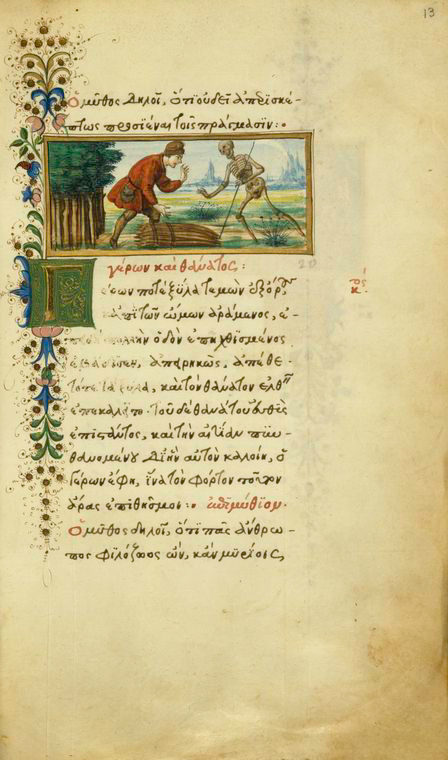 13
Ὁ μῦθος δηλοῖ, ὅτι οὐ δεῖ ἀπερισκέ-
πτως προσιέναι τοῖς πράγμασιν:
γέρων καὶ θάνατος:
20
Γέρων ποτὲ ξύλα τεμὼν ἐξ ὄρους
κἀπὶ τῶν ὤμων ἀράμενος, ἐ-
πειδὴ πολλὴν ὁδὸν ἐπηχθισμένος
ἐβάδισεν, ἀπειρηκὼς, ἀπέθε-
τό τε τὰ ξύλα, καὶ τὸν θάνατον ἐλθεῖν
ἐπεκαλεῖτο. τοῦ δὲ θανάτου εὐθὺς
ἐπιστάντος, καὶ τὴν αἰτίαν πυν-
θανομένου δι' ἣν αὐτὸν καλοίη, ὁ
γέρων ἔφη, ἵνα τὸν φόρτον τοῦτον
ἄρας ἐπιθῇς μοι: ἐπιμύθιον.
Ὁ μῦθος δηλοῖ, ὅτι πᾶς ἄνθρω-
πος φιλόζωος ὢν, κἂν μυρίοις